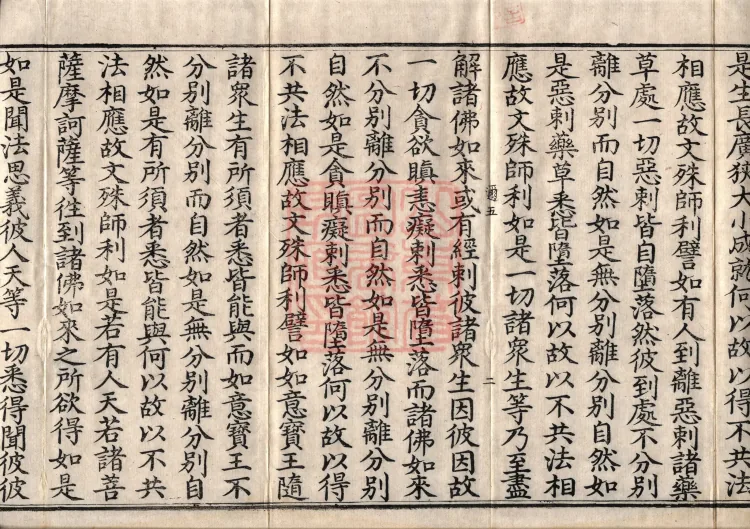 是生長廣狹大小成就何以故以得不共法
相應故文殊師利譬如有人到離惡刺諸藥
草處一切惡刺皆自墮落然彼到處不分別
離分別而自然如是無分別離分別自然如
是惡刺藥草悉皆墮落何以故以不共法相
應故文殊師利如是一切諸衆生等乃至盡
彌五
二
解諸佛如來或有經刺彼諸衆生因彼因故
一切貪欲瞋恚癡刺悉皆墮落而諸佛如來
不分別離分別而自然如是無分別離分別
自然如是貪瞋癡刺悉皆墮落何以故以得
不共法相應故文殊師利譬如如意寶王隨
諸衆生有所須者悉皆能與而如意寶王不
分別離分別而自然如是無分別離分別自
然如是有所須者悉皆能與何以故以不共
法相應故文殊師利如是若有人天若諸善
薩摩訶薩等往到諸佛如來之所欲得如是
如是聞法思義彼人天等一切悉得聞彼彼